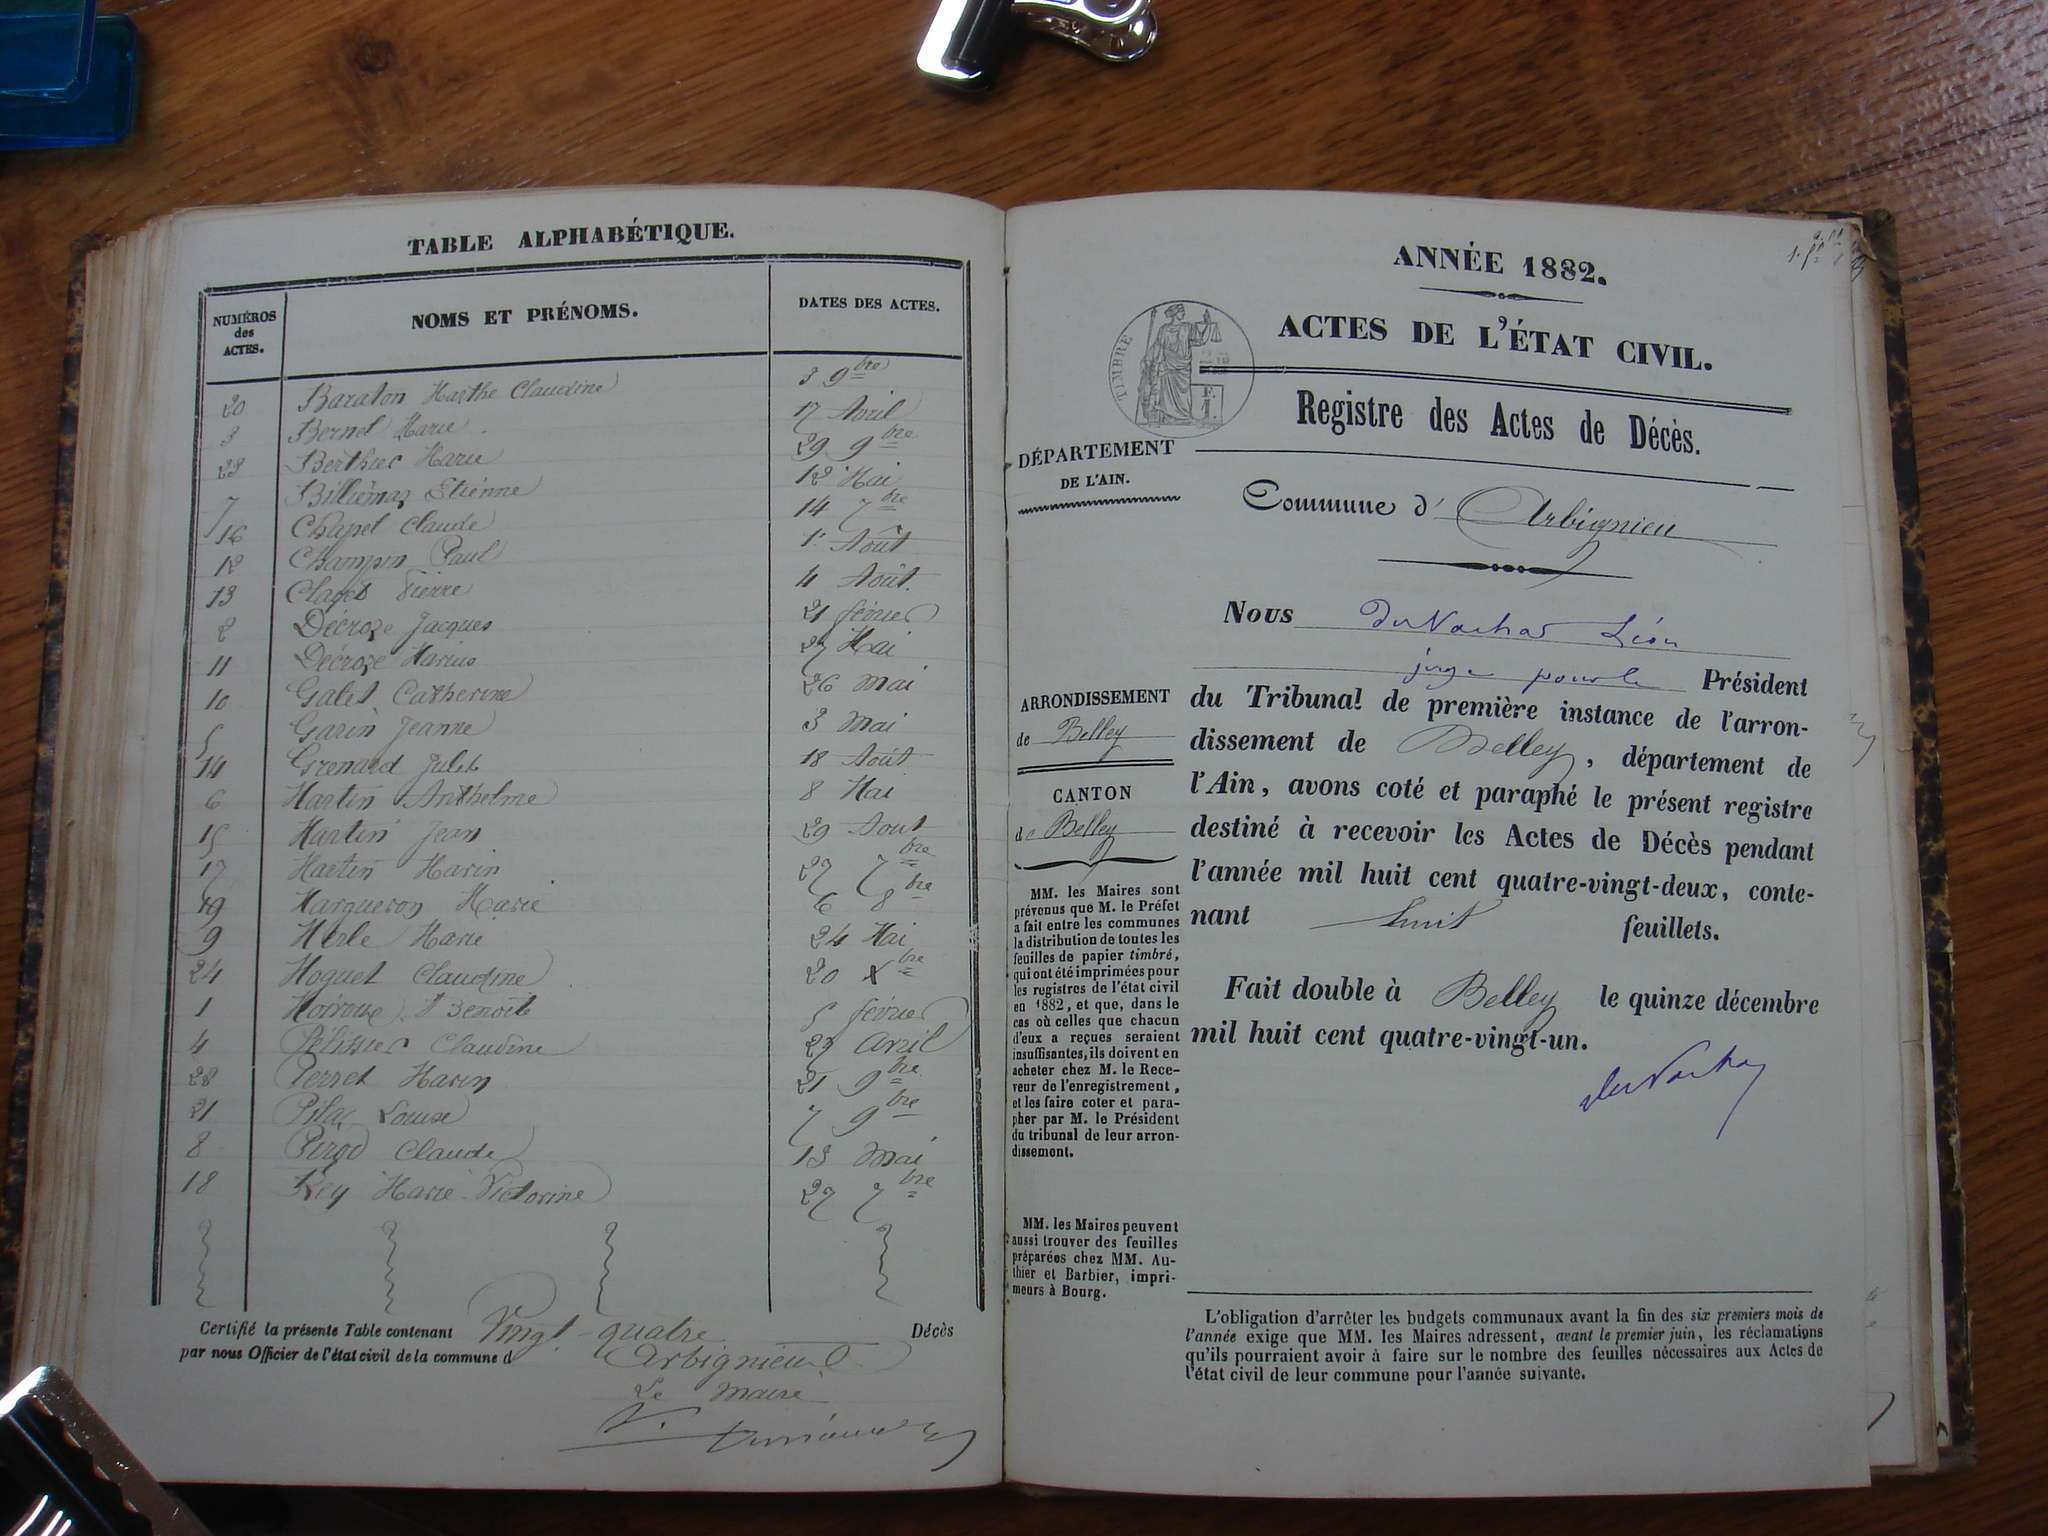 TABLE ALPHABÉTIQUE.
NUMÉROS des ACTES. NOMS ET PRÉNOMS. DATES DES ACTES.
20 Baraton Marthe Claudine 3 9bre
3 Bernet Marie 17 Avril
23 Berthier Marie 29 9bre
7 Billiémaz Etienne 12 Mai
16 Chapel Claude 14 7bre
12 Champin Paul 1er Août
13 Pierre 4 Août
2 Décroze Jacques 21 février
11 Décroze Marius 27 Mai
10 Galet Catherine 26 mai
5 Garin Jeanne 3 mai
14 Grenard Jules 18 Août
6 Martin Anthelme 8 Mai
15 Martin Jean 29 Aout
17 Martin Marin 27 7bre
19 Margueron Marie 6 8bre
9 Merle Marie 24 Mai
24 Moguet Claudine 20 Xbre
1 Benoite 5 février
4 Pélissier Claudine 27 Avril
22 Perret Marin 21 9bre
21 Louise 7 9bre
8 Pirod Claude 13 mai
18 Rey Marie Victorine 27 7bre
Certifié la présente Table contenant Vingt-quatre Décès
par nous Officier de l'état civil de la commune d Arbignieu
Le maire
ANNÉE 1882.
ACTES DE L'ÉTAT CIVIL.
TIMBRE
Registre des Actes de Décès.
DÉPARTEMENT
DE L'AIN.
Commune d' Arbignieu
ARRONDISSEMENT
de Belley
CANTON
de Belley
MM. les Maires sont
prévenus que M. le Préfet
a fait entre les communes
la distribution de toutes les
feuilles de papier timbré,
qui ont été imprimées pour
les registres de l'état civil
en 1882, et que, dans le
cas où celles que chacun
d'eux a reçues seraient
insuffisantes, ils doivent en
acheter chez M. le Rece-
veur de l'enregistrement,
et les faire coter et para-
pher par M. le Président
du tribunal de leur arron-
dissement.
MM. les Maires peuvent
aussi trouver des feuilles
préparées chez MM. Au-
thier et Barbier, impri-
meurs à Bourg.
Nous Léon
juge pour le Président
du Tribunal de première instance de l'arron-
dissement de Belley, département de
l'Ain, avons coté et paraphé le présent registre
destiné à recevoir les Actes de Décès pendant
l'année mil huit cent quatre-vingt-deux, conte-
nant huit feuillets.
Fait double à Belley le quinze décembre
mil huit cent quatre-vingt-un.
L'obligation d'arrêter les budgets communaux avant la fin des six premiers mois de
l'année exige que MM. les Maires adressent, avant le premier juin, les réclamations
qu'ils pourraient avoir à faire sur le nombre des feuilles nécessaires aux Actes de
l'état civil de leur commune pour l'année suivante.